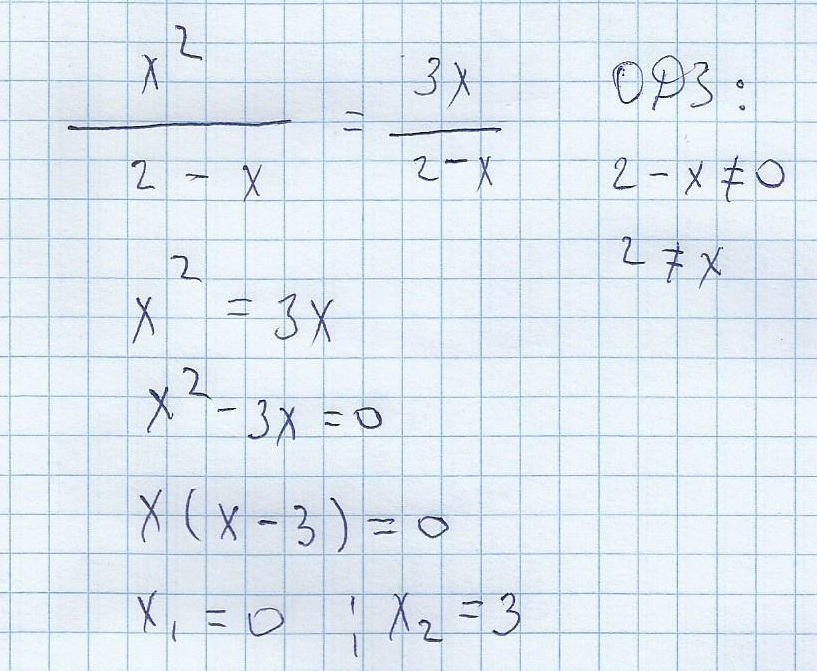 x² / (2 - x) = 3x / (2 - x)
ОДЗ:
2 - x ≠ 0
2 ≠ x
x² = 3x
x² - 3x = 0
x(x - 3) = 0
x₁ = 0 ; x₂ = 3